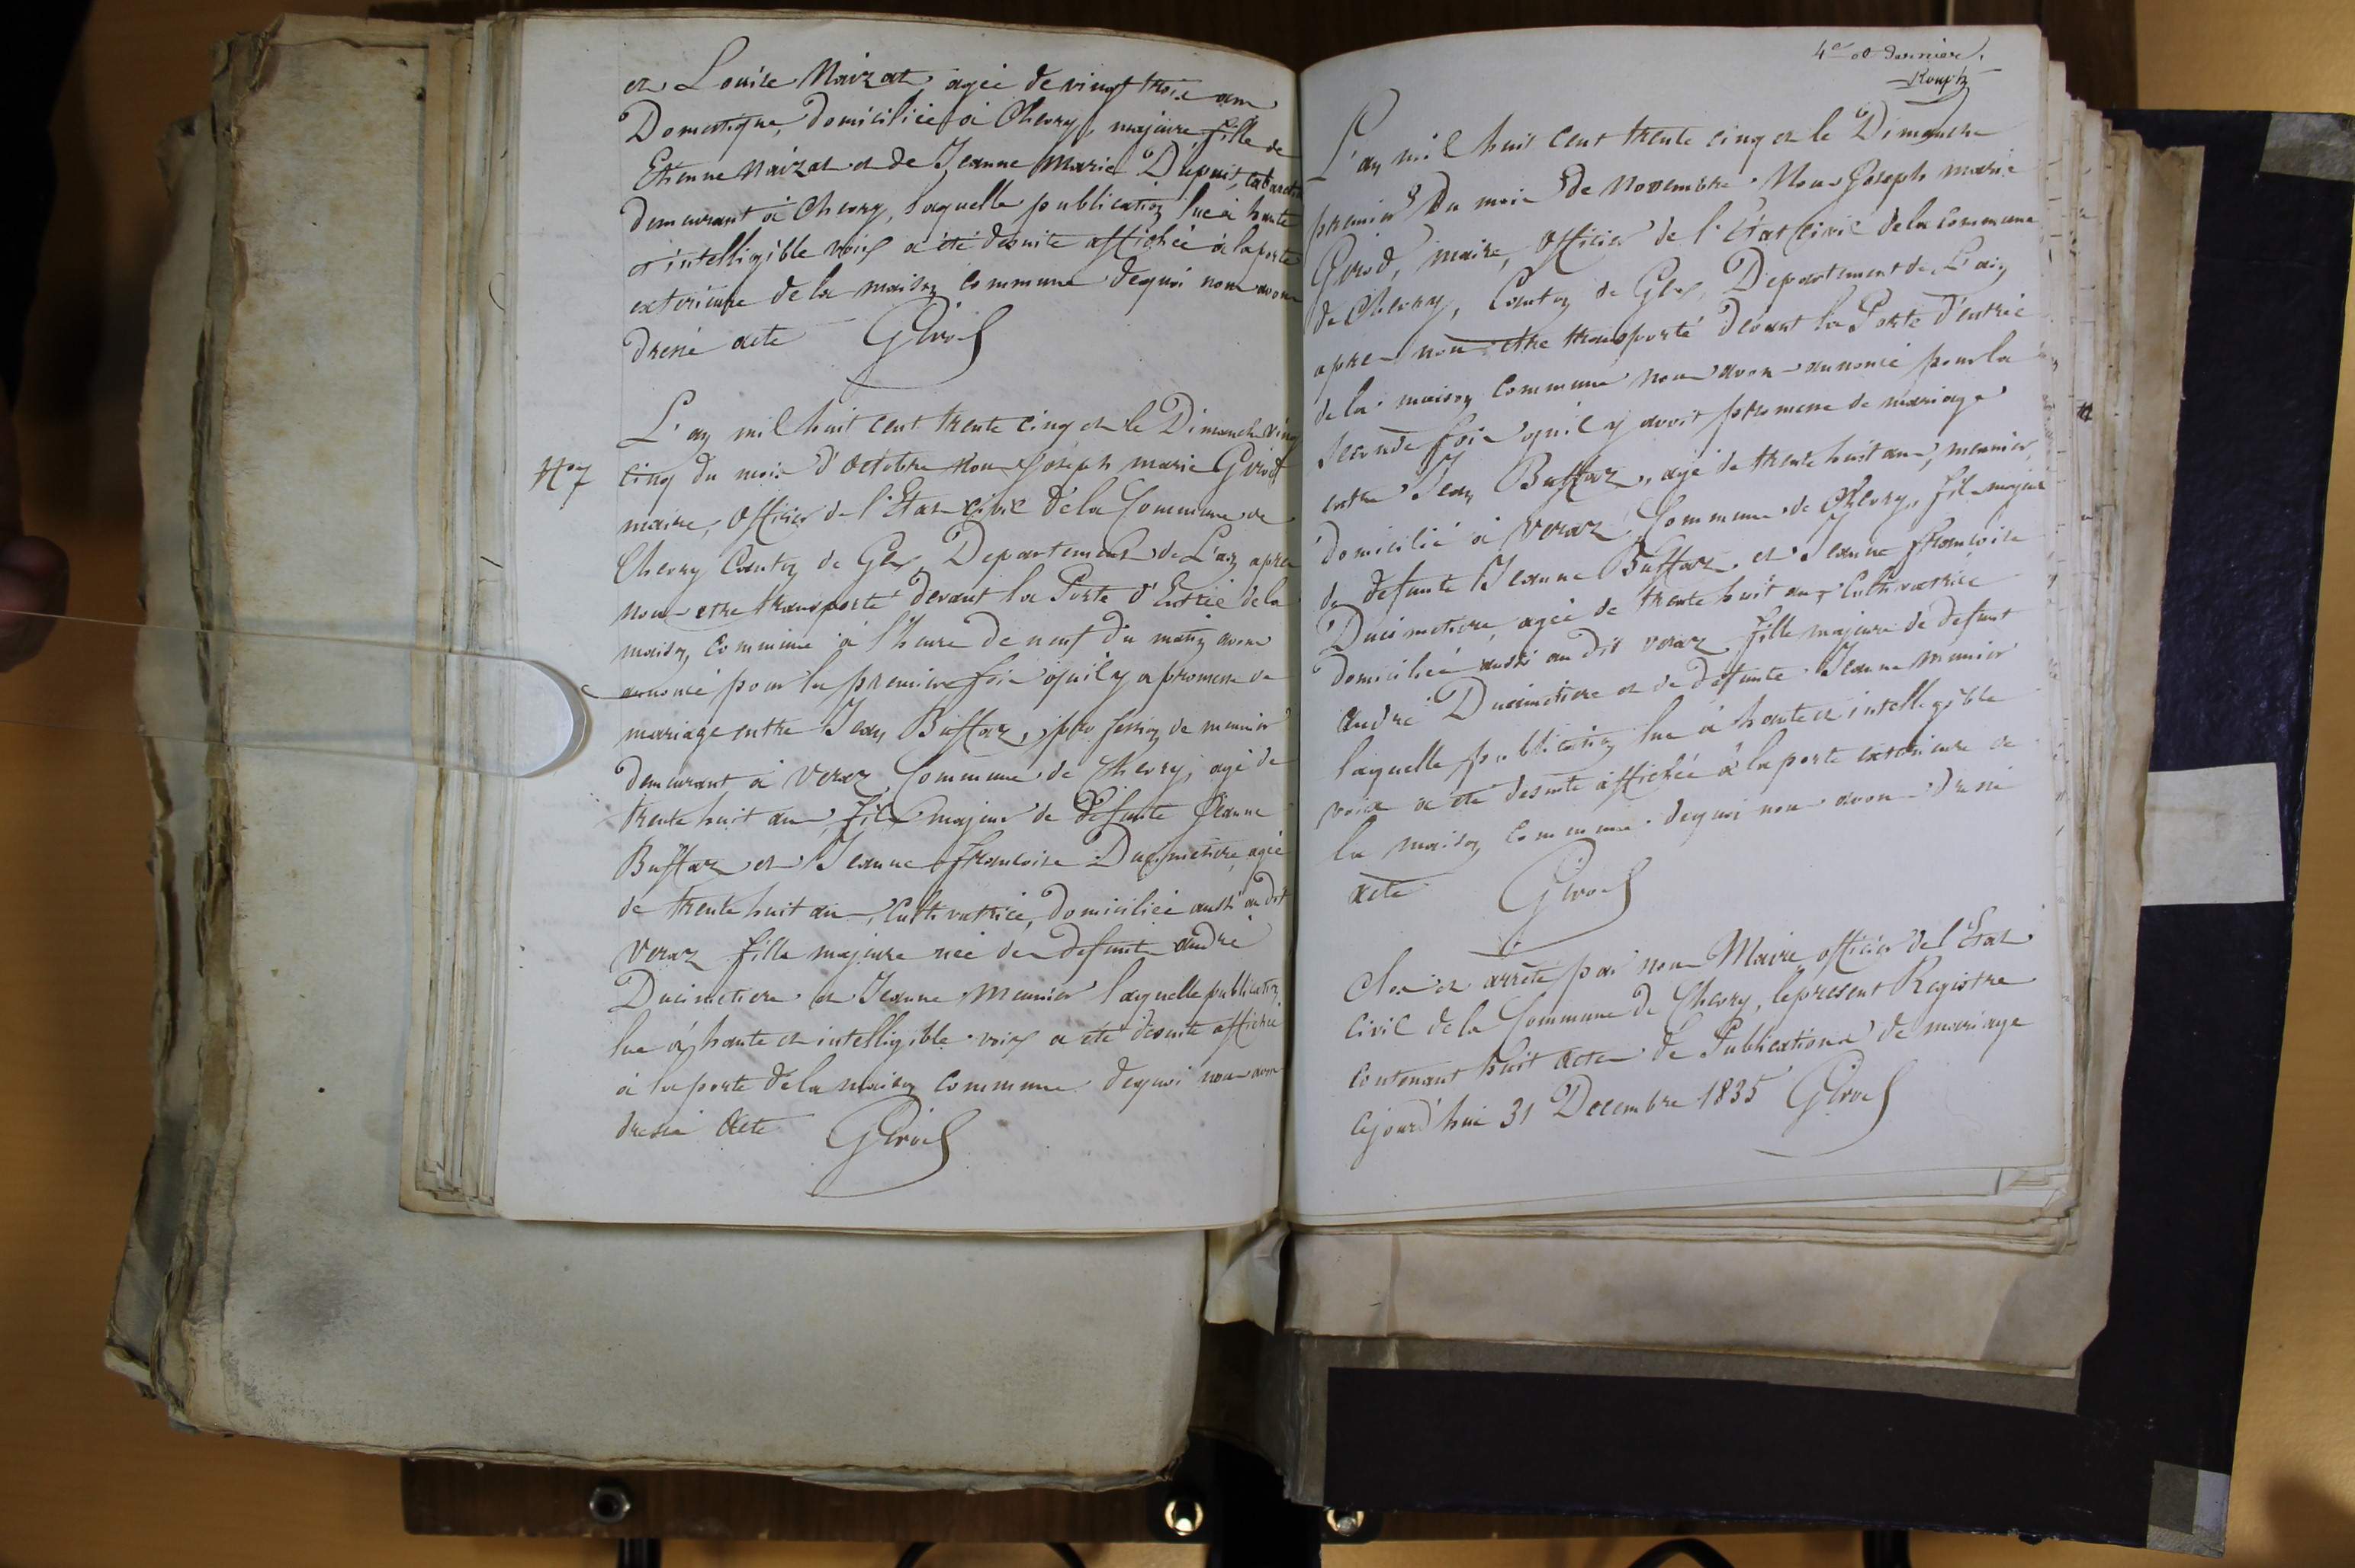 et Louise Naizat, agée de vingt trois ans
Domestique, domiciliée à Chevry, majeure, fille de
Etienne Naizat et de Jeanne Marie Dupuis,
demeurant à Chevry, laquelle publication lue à haute
et intelligible voix a été desuite affichée à la porte
exterieure de la maison commune dequoi nous avons
dressé acte Girod
L'an mil huit cent trente cinq et le Dimanche vingt
N° 7 cinq du mois d'Octobre nous Joseph marie Girod
maire, Officier de l'Etat civil de la Commune de
Chevry Canton de Gex, Departement de L'ain apres
nous etre transporté devant la Porte d'Entrée de la
maison commune à l'heure de neuf du matin avons
annoncé pour la premiere fois qu'il y a promesse de
mariage entre Jean Buffaz, profession de meunier
demeurant à Veraz Commune de Chevry, agé de
trente huit ans, fils majeur de Defunte Jeanne
Buffaz et Jeanne françoise Ducimetiere, agée
de trente huit ans, Cultivatrice, domiciliée aussi au dit
Veraz fille majeure née de defunt andré
Ducimetiere et Jeanne Meunier laquelle publication
lue à haute et intelligible voix a été desuite affichée
à la porte de la maison commune dequoi nous avons
dressé Acte Girod
4e et dernier.
L'an mil huit cent trente cinq et le Dimanche
premier du mois de Novembre. Nous Joseph marie
Girod, maire, Officier de l'Etat Civil de la Commune
de Chevry, Canton de Gex, Departement de L'ain
apres nous etre transporté devant la Porte d'entrée
de la maison commune nous avons annoncé pour la
seconde fois qu'il y avoit promesse de mariage
entre Jean Buffaz, agé de trente huit ans, meunier,
domicilié à Veraz, Commune de Chevry, fils majeur
de defunte Jeanne Buffaz, et Jeanne françoise
Ducimetiere, agée de trente huit ans, Cultivatrice
domiciliée aussi au dit Veraz fille majeure de defunt
André Ducimetiere et de defunte Jeanne Meunier
laquelle publication lue à haute et intelligible
voix a été desuite affichée à la porte exterieure de
la maison commune dequoi nous avons dressé
acte Girod
Clos et arrêté par nous Maire officier de l'Etat
Civil de la Commune de Chevry, le present Registre
contenant huit actes de Publications de mariage
cejourd'hui 31 Decembre 1835 Girod